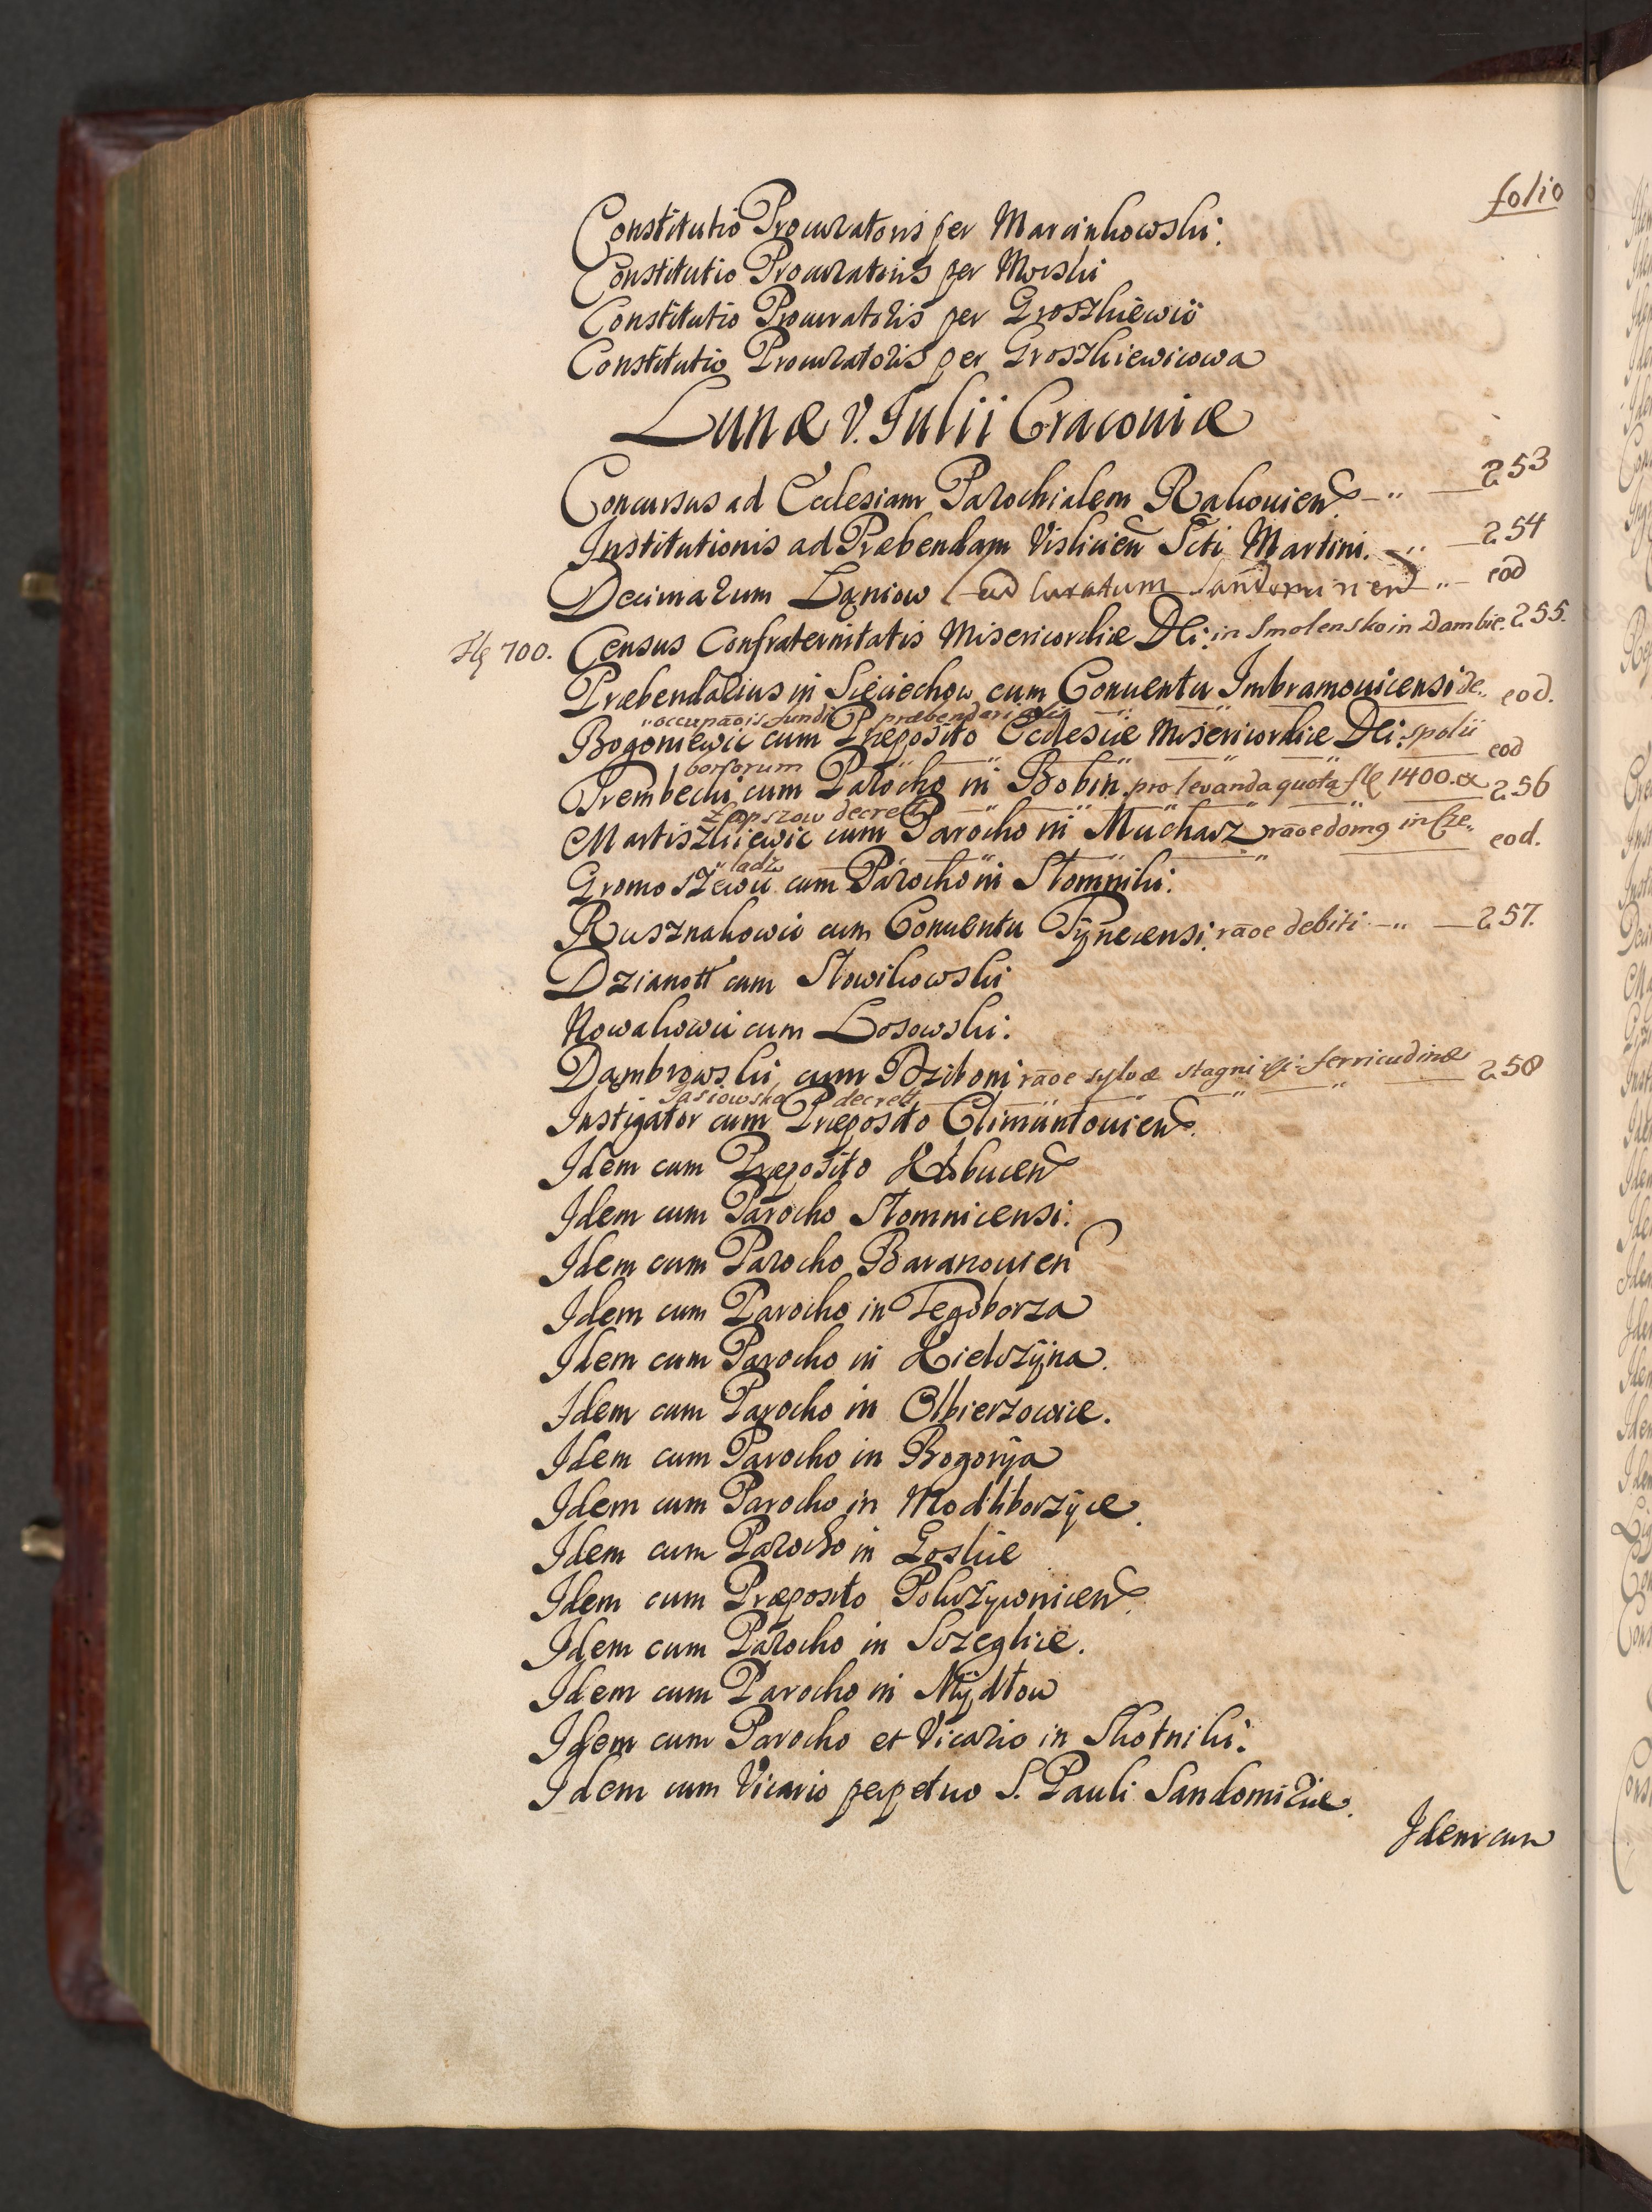 folio
Constitutio Procuratoris per Marcinkowski.
Constitutio Procuratoris per Morski
Constitutio Procuratoris per Groszkiewic
Constitutio Procuratoris per Groszkiewicowa
Lunæ V. Julii Cracoviæ
Concursus ad Ecclesiam Parochialem Rakoviens. 253
Institutionis ad Præbendam Vislicien Scti Martini. 254
Decimarum Łgniow ad Curatum Sandomirien eod
Fl 700. Census Confraternitatis Misericordiæ Dei: in Smolensko in Dambie. 255.
Præbendarius in Sieciechow cum Conventu Imbramovicensi de eod.
occupaois fundi præbendarialis
Bogoniewic cum Præposito Ecclesiæ Misericordiæ Dei: spolii eod
borforum
Trembecki cum Parocho in Bobin. pro levanda quota fl 1400. ex 256
Zapszow decrett
Martiszkiewic cum Parocho in Mucharz raoe domg in eod.
ladz
Gromoszewic cum Parocho in Słomniki.
Rusznakowic cum Conventu Tynecensi. raoe debiti 257.
Dzianott cum Słowikowski
Nowakowic cum Łosowski.
Dąmbrowski cum Dziboni raoe sylvæ stagni ferricudinæ 258
Jasiowska decrett
Instigator cum Præposito Climuntoviens.
Idem cum Præposito Kłobucens
Idem cum Parocho Słomnicensi.
Idem cum Parocho Baranovien
Idem cum Parocho in Tegoborza
Idem cum Parocho in Kielczyna.
Idem cum Parocho in Olbierzowice.
Idem cum Parocho in Bogorya
Idem cum Parocho in Modliborzyce.
Idem cum Parocho in Goslice
Idem cum Præposito Pokrzywnicens.
Idem cum Parocho in Szczeglice.
Idem cum Parocho in Mydłow
Idem cum Parocho et Vicario in Skotniki.
Idem cum Vicario perpetuo S. Pauli Sandomiriæ.
Idem cum